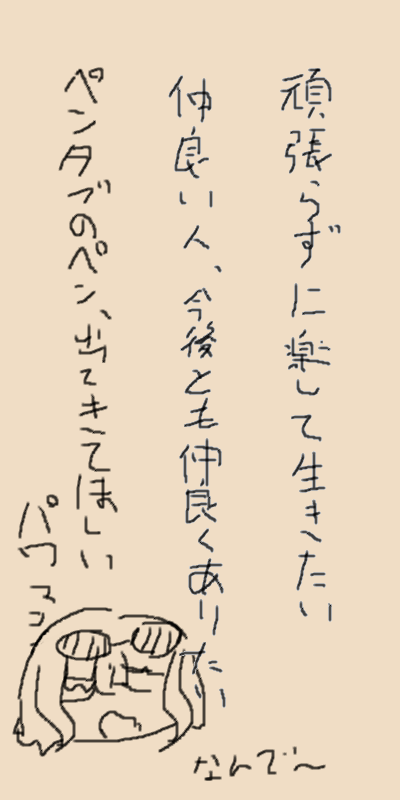 頑張らずに楽して生きたい
仲良い人、今後とも仲良くありたい
ペンタブのペン、出てきてほしい
パワコン
なんで〜